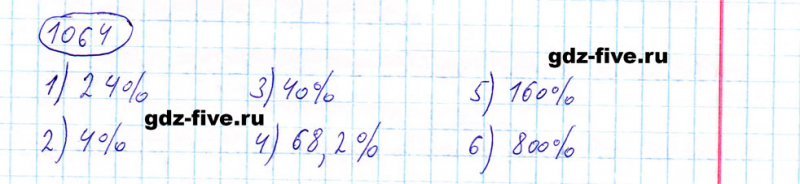 1064
gdz-five.ru
1) 24% 3) 40% 5) 160%
gdz-five.ru
2) 4% 4) 68,2% 6) 800%